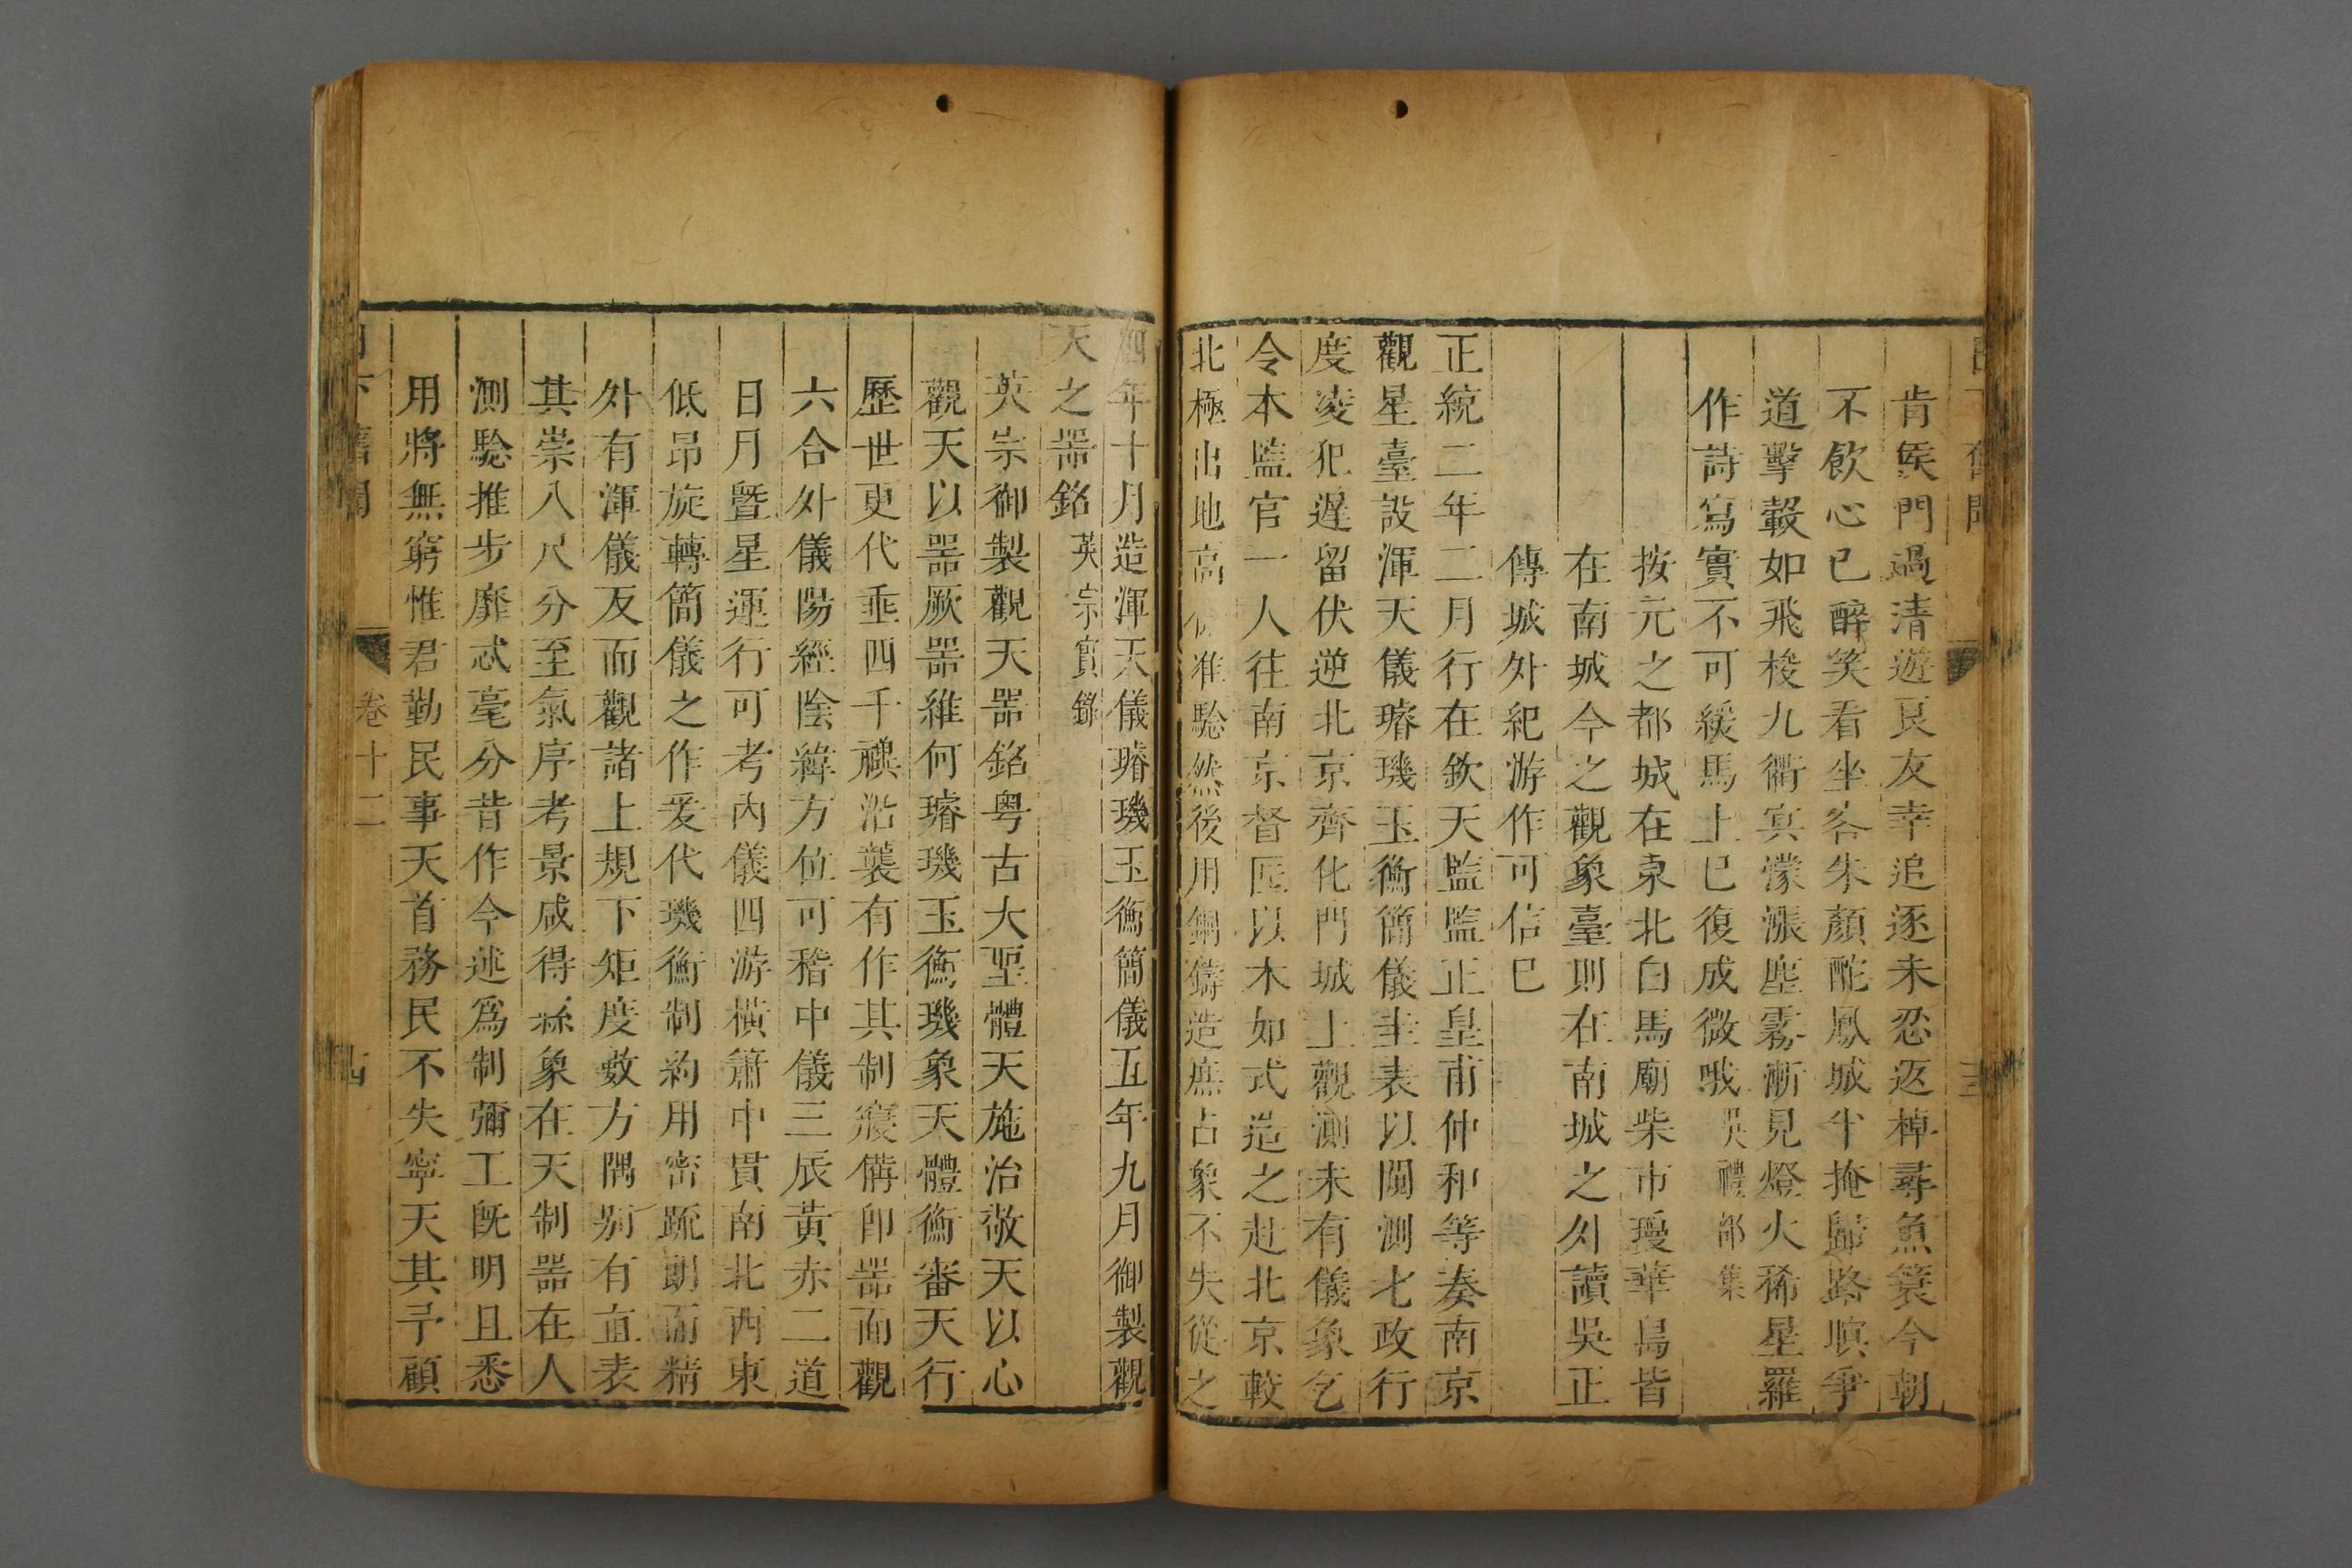 肯矦門過清遊良友幸追逐未忍返棹尋魚簑今朝
不飲心已醉笑看坐客朱顏酡鳳城半掩歸路瞑爭
道擊轂如飛梭九衢冥濛漲塵霧漸見燈火稀星羅
作詩寫實不可緩馬上已復成微哦吳禮部集
按元之都城在東北白馬廟柴市瓊華島皆
在南城今之觀象臺則在南城之外讀吳正
傳城外紀游作可信已
正統二年二月行在欽天監監正皇甫仲和等奏南京
觀星臺設渾天儀璿璣玉衡簡儀圭表以闚測七政行
度凌犯遲留伏逆北京齊化門城上觀測未有儀象乞
令本監官一人往南京督匠以木如式造之赴北京較
北極出地高低准驗然後用銅鑄造庶占象不失從之
四年十月造渾天儀璿璣玉衡簡儀五年九月御製觀
天之噐銘英宗實錄
英宗御製觀天噐銘粤古大聖體天施治敬天以心
觀天以噐厥噐維何璿璣玉衡璣象天體衡審天行
歷世更代垂四千禩沿襲有作其制寖備卽噐而觀
六合外儀陽經陰緯方位可稽中儀三辰黃赤二道
日月曁星運行可考內儀四游橫簫中貫南北西東
低昂旋轉簡儀之作爰代璣衡制約用密疏朗而精
外有渾儀反而觀諸上規下矩度數方隅别有直表
其崇八尺分至氣序考景咸得縣象在天制噐在人
測驗推步靡忒毫分昔作今述爲制彌工旣明且悉
用將無窮惟君勤民事天首務民不失寧天其予顧
卷十二